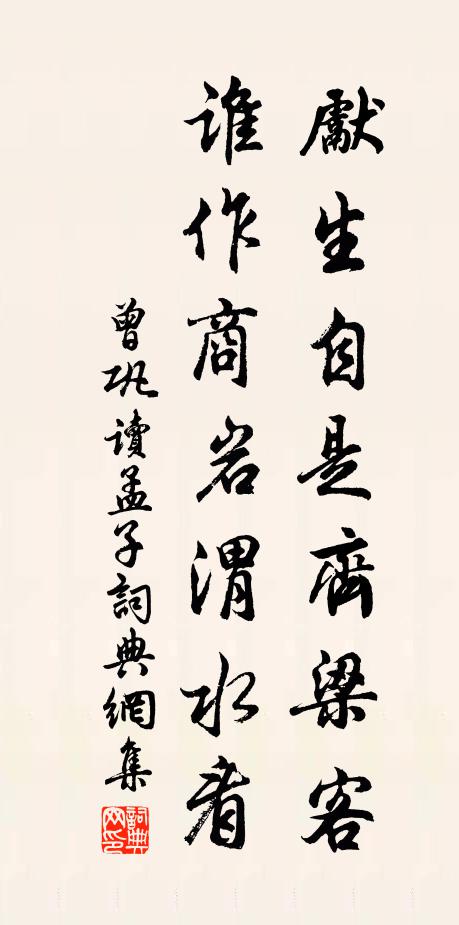 獻生自是齊梁客
誰作商岩渭水看
曾巩讀孟子詞典網集
詞典网印